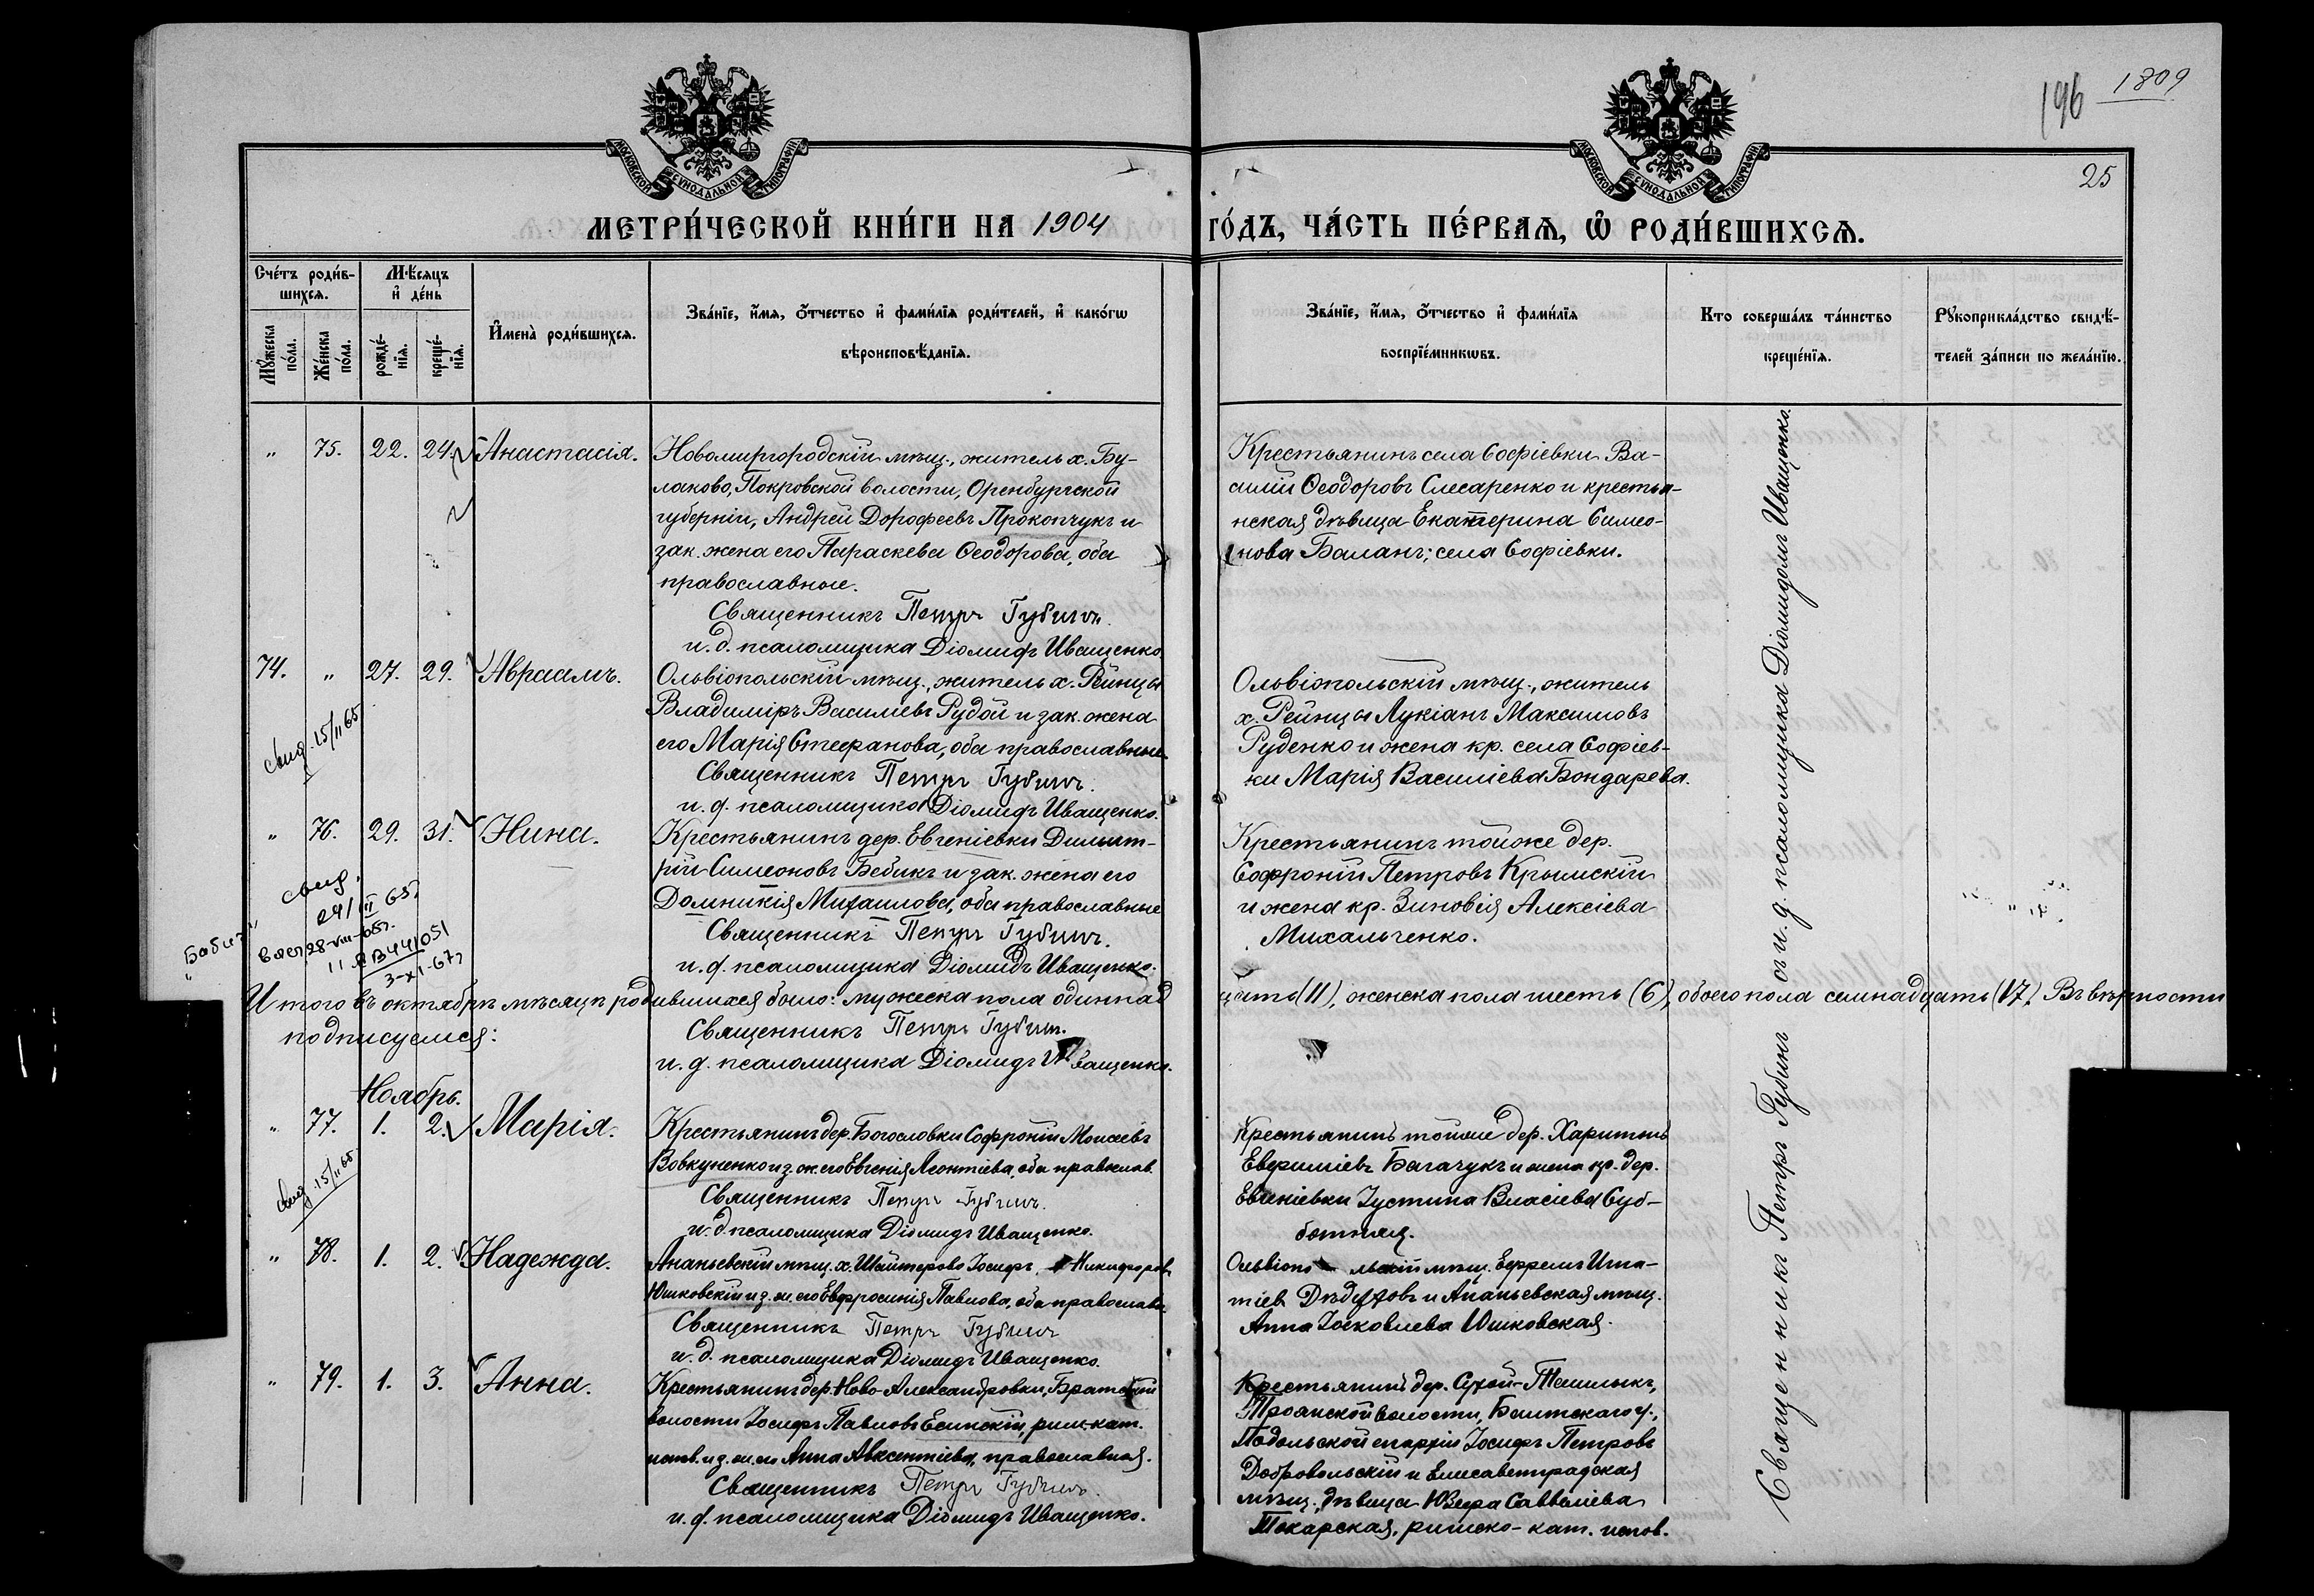 1809
196
25
МОСКОВСКОЙ СѴНОДАЛЬНОЙ ТИПОГРАФІИ
МОСКОВСКОЙ СѴНОДАЛЬНОЙ ТИПОГРАФІИ
МЕТРИ́ЧЕСКОЙ КНИ́ГИ НА 1904 ГО́ДЪ, ЧА́СТЬ ПЕ́РВАѦ, Ѡ҆ РОДИ́ВШИХСѦ.
Сче́тъ роди́в-
шихсѧ.
Мѣ́сѧцъ
и҆ де́нь
Мꙋ́жеска
по́ла.
Же́нска
по́ла.
рожде́-
нїѧ.
креще́-
нїѧ.
И҆мена̀ роди́вшихсѧ.
Зва́нїе, и҆́мѧ, ѻ҆́тчество и҆ фами́лїѧ роди́телей, и҆ како́гѡ
вѣроисповѣ́данїѧ.
Зва́нїе, и҆́мѧ, ѻ҆́тчество и҆ фами́лїѧ
воспрїе́мникѡвъ.
Кто соверша́лъ та́инство
креще́нїѧ.
Рꙋкоприкла́дство свидѣ́-
телей за́писи по жела́нїю.
" 75. 22. 24. Анастасія.
Новомиргородскій мѣщ., житель х. Бу-
лаково, Покровской волости, Оренбургской
губерніи, Андрей Дорофеевъ Прокопчукъ и
зак. жена его Параскева Ѳеодорова, оба
православные.
Священникъ Петръ Губинъ.
и. д. псаломщика Діомидъ Иващенко.
Крестьянинъ села Софіевки Ва-
силій Ѳеодоровъ Слесаренко и крестья-
нская дѣвица Екатерина Симео-
нова Баланъ; села Софіевки.
74. " 27. 29. Авраамъ.
свид. 15/II 65
Ольвіопольскій мѣщ., житель х. Рейнцы
Владиміръ Василіевъ Рудой и зак. жена
его Марія Стефанова, оба православные
Священникъ Петръ Губинъ.
и. д. псаломщика Діомидъ Иващенко.
Ольвіопольскій мѣщ., житель
х. Рейнцы Лукіанъ Максимовъ
Руденко и жена кр. села Софіев-
ки Марія Василіева Бондарева.
" 76. 29. 31. Нина.
свид.
24/III 65г
28-VIII-65г.
3-XI-67г
Крестьянинъ дер. Евгеніевки Димит-
рій Симеоновъ Бебикъ и зак. жена его
Домникія Михаилова, оба православные
Священникъ Петръ Губинъ.
и. д. псаломщика Діомидъ Иващенко.
Крестьянинъ тойже дер.
Софроній Петровъ Крымскій
и жена кр. Зиновія Алексіева
Михальченко.
Итого въ октябрѣ мѣсяцѣ родившихся было: мужеска пола одиннад цать (11), женска пола шесть (6), обоего пола семнадцать (17). Въ вѣрности
подписуемся:
Священникъ Петръ Губинъ.
и. д. псаломщика Діомидъ Иващенко.
Ноябрь.
" 77. 1. 2. Марія.
свид 15/II 65
Крестьянинъ дер. Богословки Софроній Моисеевъ
Вовкуненко и з. ж. его Евгенія Леонтіева, оба православ.
Священникъ Петръ Губинъ.
и. д. псаломщика Діомидъ Иващенко.
Крестьянинъ тойже дер. Харитонъ
Евфиміевъ Багачукъ и жена кр. дер.
Евгеніевки Іустина Власіева Суб-
ботняя.
" 78. 1. 2. Надежда.
Ананьевскій мѣщ. х. Шайтерово Іосифъ Никифоровъ
Юшковскій и з. ж. его Евфросинія Павлова, оба православн.
Священникъ Петръ Губинъ
и. д. псаломщика Діомидъ Иващенко.
Ольвіопольскій мѣщ. Ефремъ Игна-
тіевъ и Ананьевская мѣщ.
Анна Юшковская.
" 79. 1. 3. Анна.
Крестьянинъ дер. Ново-Александровки, Братской
волости Іосифъ Павловъ Есинскій, рим-кат.
испов. и з. ж. его Анна Авксентіева, православная.
Священникъ Петръ Губинъ.
и. д. псаломщика Діомидъ Иващенко.
Крестьянинъ дер. Сухой-Ташлыкъ,
Троянской волости, Балтскаго у.,
Подольской епархіи Іосифъ Петровъ
Добровольскій и Елисаветградская
мѣщ. дѣвица Юзефа Савельева
Токарская, римско-кат. испов.
Священникъ Петръ Губинъ съ и. д. псаломщика Діомидомъ Иващенко.